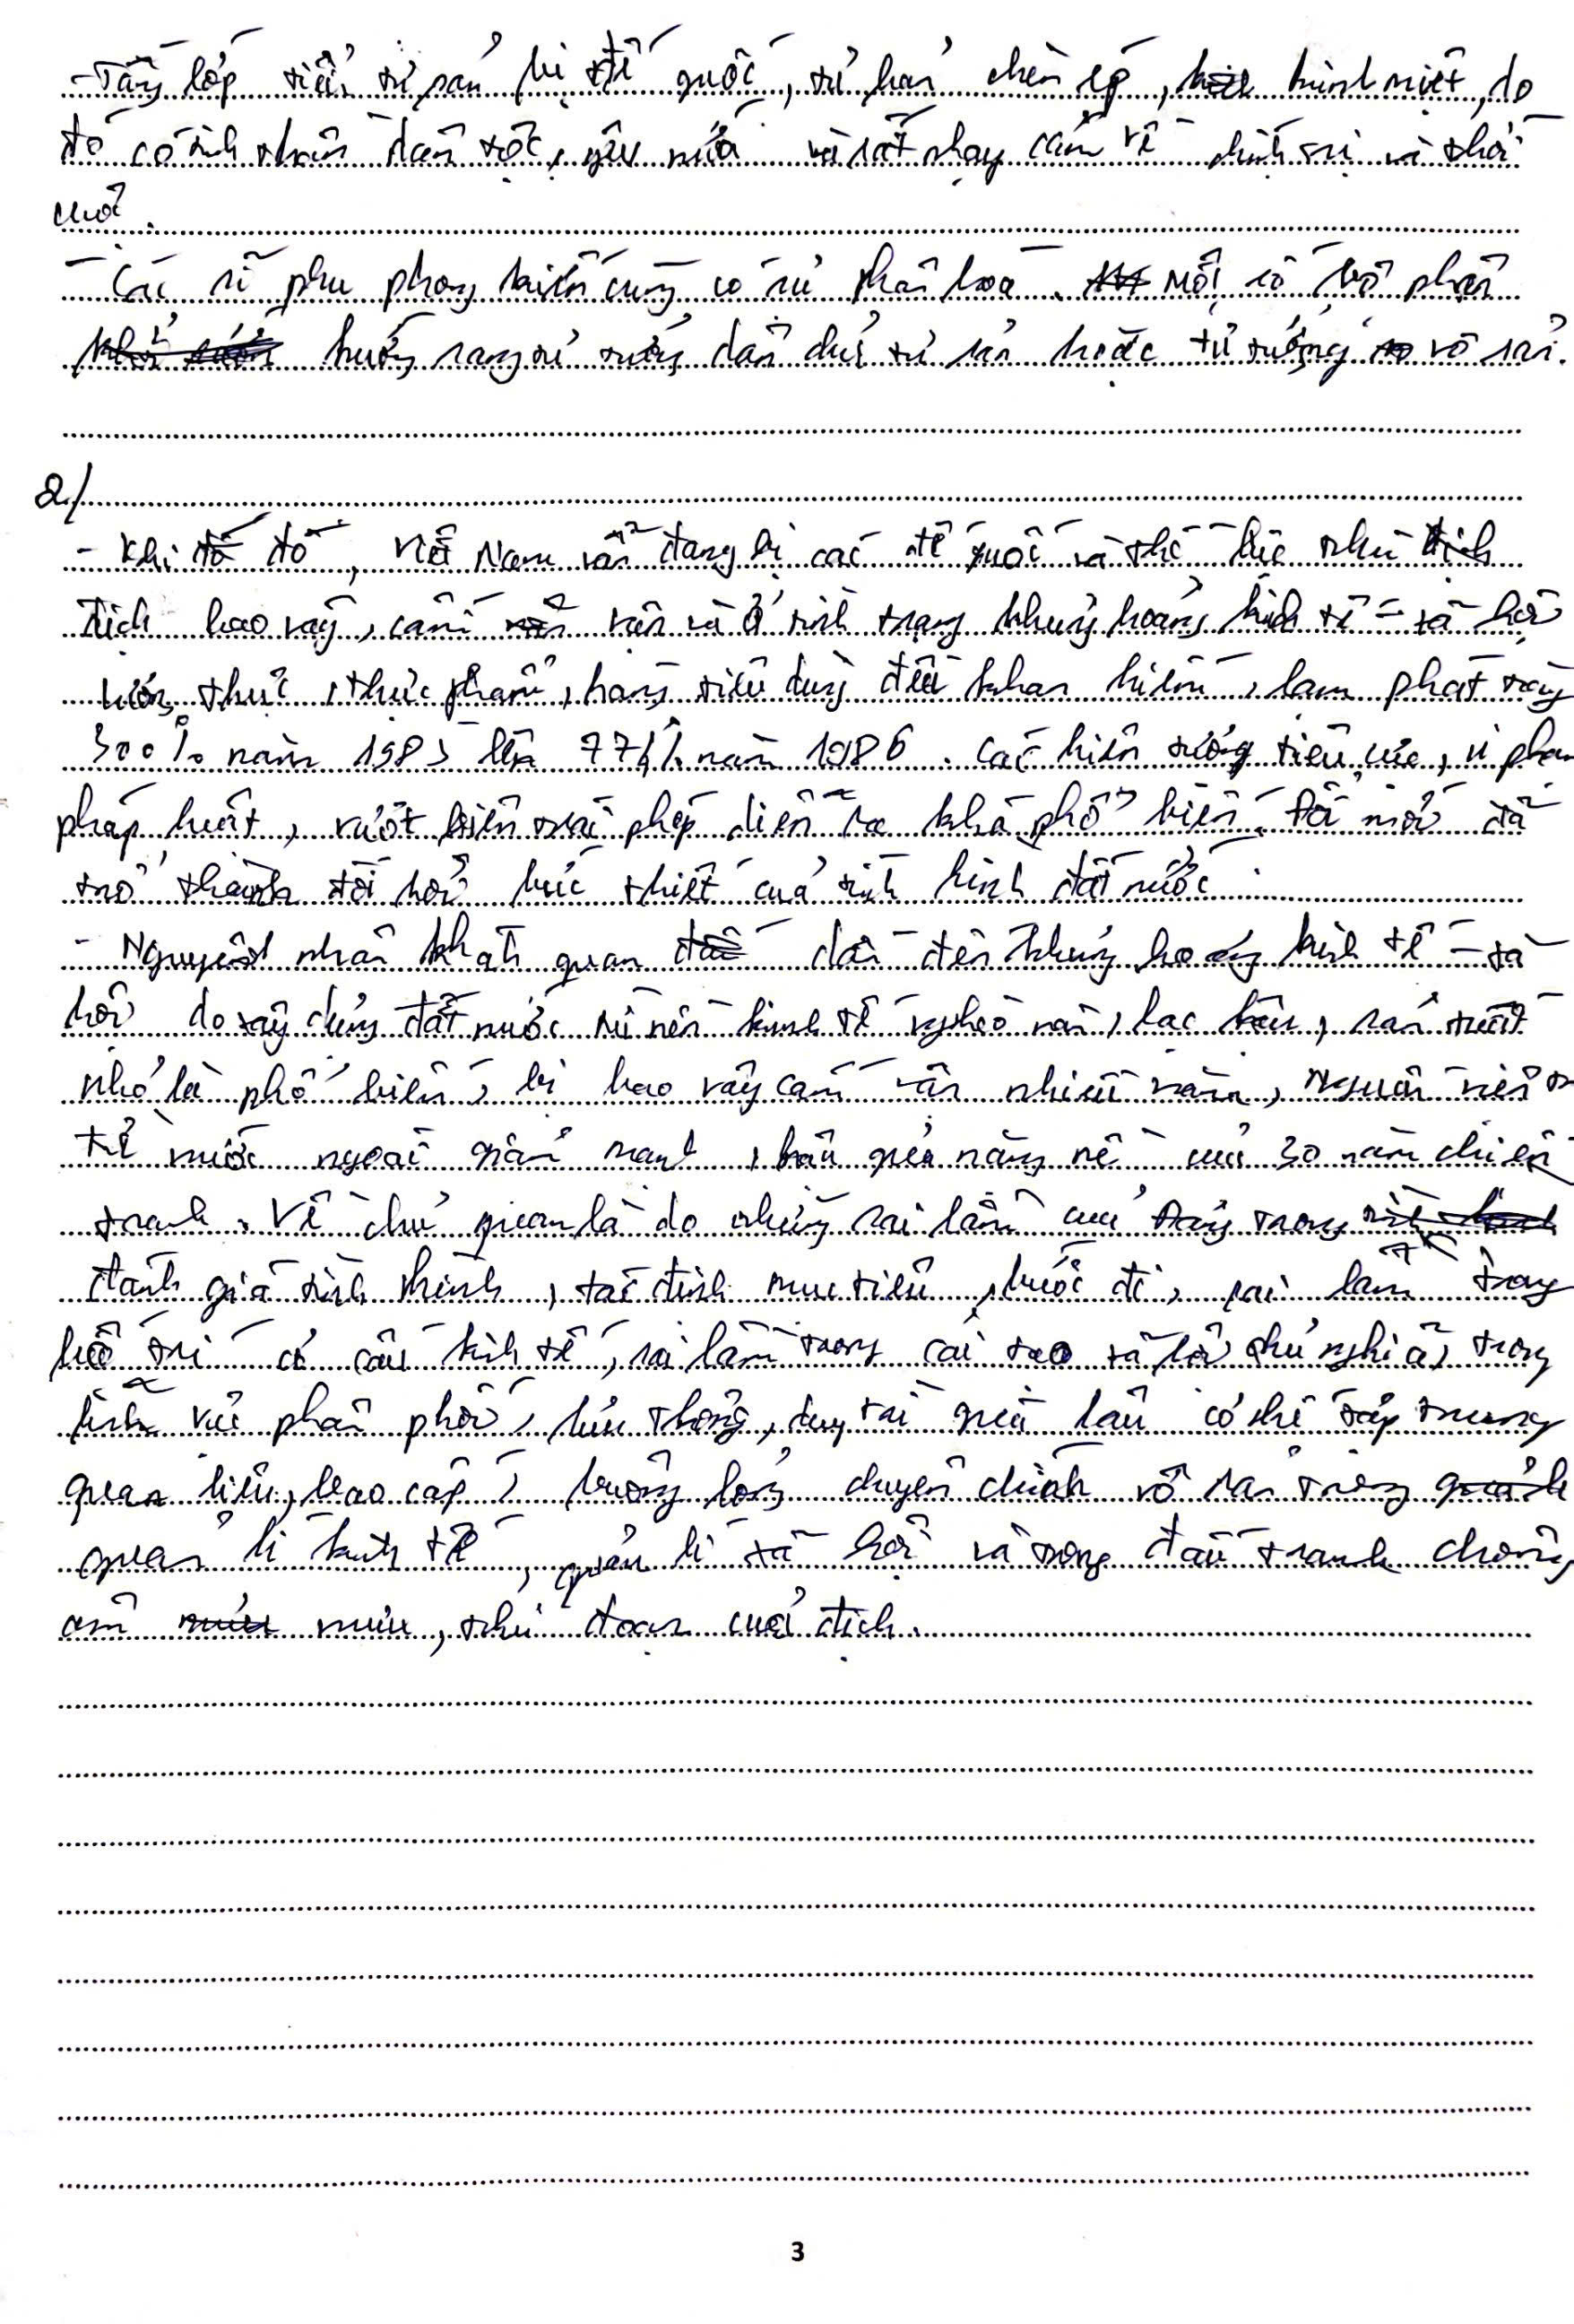 - Tầng lớp tiểu tư sản bị đế quốc, tư bản chèn ép, khinh miệt, do
đó có tinh thần dân tộc, yêu nước và rất nhạy cảm về chính trị và thời
cuộc.
- Các sĩ phu phong kiến cũng có sự phân hoá. Một số bộ phận
hướng sang tư tưởng dân chủ tư sản hoặc tư tưởng vô sản.
2/
- Khi đó, Việt Nam vẫn đang bị các đế quốc và thế lực thù
địch bao vây, cấm vận và ở tình trạng khủng hoảng kinh tế - xã hội
lương thực, thực phẩm, hàng tiêu dùng đều khan hiếm, lạm phát tăng
300% năm 1985 lên 774% năm 1986. Các hiện tượng tiêu cực, vi phạm
pháp luật, vượt biên trái phép diễn ra khá phổ biến. Đổi mới đã
trở thành đòi hỏi bức thiết của tình hình đất nước.
- Nguyên nhân khách quan dẫn đến khủng hoảng kinh tế - xã
hội do xây dựng đất nước từ nền kinh tế nghèo nàn, lạc hậu, sản xuất
nhỏ là phổ biến, bị bao vây cấm vận nhiều năm, nguồn viện trợ
từ nước ngoài giảm mạnh, hậu quả nặng nề của 30 năm chiến
tranh. Về chủ quan là do những sai lầm của Đảng trong
đánh giá tình hình, xác định mục tiêu, bước đi, sai lầm trong
bố trí cơ cấu kinh tế, sai lầm trong cải tạo xã hội chủ nghĩa, trong
lĩnh vực phân phối, lưu thông, duy trì quá lâu cơ chế tập trung
quan liêu, bao cấp, buông lỏng chuyên chính vô sản trong
quản lí kinh tế, quản lí xã hội và trong đấu tranh chống
âm mưu, thủ đoạn của địch.
3